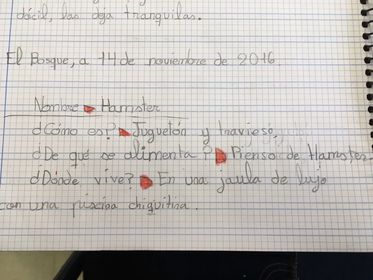 dócil, las deja tranquilas.
El Bosque, a 14 de noviembre de 2016.
Nombre Hamster
¿Cómo es? Juguetón y travieso.
¿De qué se alimenta? Pienso de Hamster.
¿Dónde vive? En una jaula de lujo
con una piscina chiquitina.